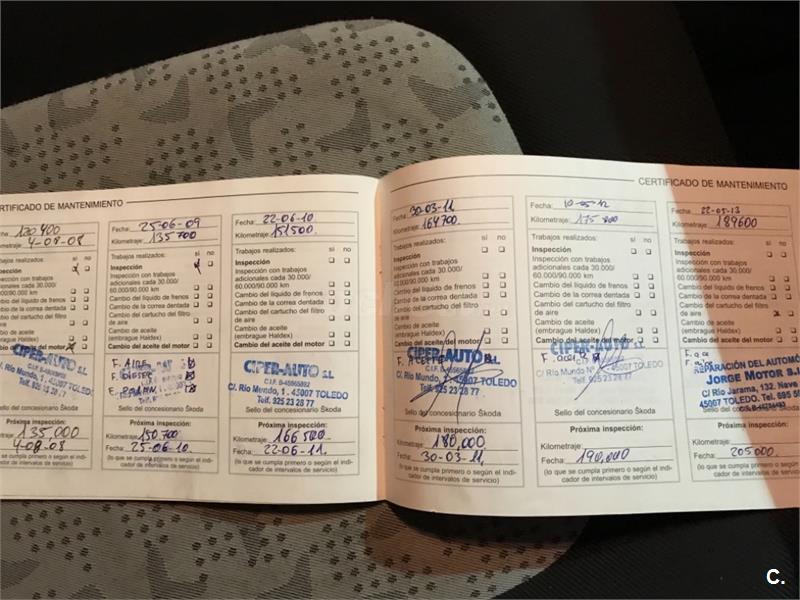 CERTIFICADO DE MANTENIMIENTO
120400
Kilometraje: 4-08-08
sí no
Inspección
Inspección con trabajos
adicionales cada 30.000/
60.000/90.000 km
Cambio del líquido de frenos
Cambio de la correa dentada
Cambio del cartucho del filtro
de aire
Cambio de aceite
(embrague Haldex)
Cambio del aceite del motor
CIPER-AUTO S.L.
C.I.F. B-45565892
C/. Río Mundo, 1 - 45007 TOLEDO
Telf. 925 23 28 77
Sello del concesionario Škoda
Próxima inspección:
135,000
4-08-08
(lo que se cumpla primero o según el indi-
cador de intervalos de servicio)
Fecha: 25-06-09
Kilometraje: 135 700
Trabajos realizados: sí no
Inspección
Inspección con trabajos
adicionales cada 30.000/
60.000/90.000 km
Cambio del líquido de frenos
Cambio de la correa dentada
Cambio del cartucho del filtro
de aire
Cambio de aceite
(embrague Haldex)
Cambio del aceite del motor
F. AIRE
Sello del concesionario Škoda
Próxima inspección:
Kilometraje: 150 700
Fecha: 25-06-10
(lo que se cumpla primero o según el indi-
cador de intervalos de servicio)
Fecha: 22-06-10
Kilometraje: 151500
Trabajos realizados: sí no
Inspección
Inspección con trabajos
adicionales cada 30.000/
60.000/90.000 km
Cambio del líquido de frenos
Cambio de la correa dentada
Cambio del cartucho del filtro
de aire
Cambio de aceite
(embrague Haldex)
Cambio del aceite del motor
CIPER-AUTO S.L.
C.I.F. B-45565892
C/. Río Mundo, 1 . 45007 TOLEDO
Telf. 925 23 28 77
Sello del concesionario Škoda
Próxima inspección:
Kilometraje: 166500
Fecha: 22-06-11
(lo que se cumpla primero o según el indi-
cador de intervalos de servicio)
CERTIFICADO DE MANTENIMIENTO
Fecha: 30-03-11
Kilometraje: 164700
Trabajos realizados: sí no
Inspección
Inspección con trabajos
adicionales cada 30.000/
60.000/90.000 km
Cambio del líquido de frenos
Cambio de la correa dentada
Cambio del cartucho del filtro
de aire
Cambio de aceite
(embrague Haldex)
Cambio del aceite del motor
F. ACEITE
CIPER-AUTO S.L.
C/. Río Mundo, 45007 TOLEDO
Telf. 925 23 28 77
Sello del concesionario Škoda
Próxima inspección:
Kilometraje: 180,000
Fecha: 30-03-11
(lo que se cumpla primero o según el indi-
cador de intervalos de servicio)
Fecha: 10-05-12
Kilometraje:
Trabajos realizados: sí no
Inspección
Inspección con trabajos
adicionales cada 30.000/
60.000/90.000 km
Cambio del líquido de frenos
Cambio de la correa dentada
Cambio del cartucho del filtro
de aire
Cambio de aceite
(embrague Haldex)
Cambio del aceite del motor
CIPER-AUTO S.L.
C/. Río Mundo 45007 TOLEDO
Telf. 925 23 28 77
Sello del concesionario Škoda
Próxima inspección:
Kilometraje:
Fecha: 190,000
(lo que se cumpla primero o según el indi-
cador de intervalos de servicio)
Fecha: 22-05-13
Kilometraje: 189600
Trabajos realizados: sí no
Inspección
Inspección con trabajos
adicionales cada 30.000/
60.000/90.000 km
Cambio del líquido de frenos
Cambio de la correa dentada
Cambio del cartucho del filtro
de aire
Cambio de aceite
(embrague Haldex)
Cambio del aceite del motor
REPARACIÓN DEL AUTOMÓ
JORGE MOTOR S.
C/ Río Jarama, 132. Nave
45007 TOLEDO Tel. 695
Sello del concesionario Škoda
Próxima inspección:
Kilometraje:
Fecha: 205000
(lo que se cumpla primero o según el indi-
cador de intervalos de servicio)
C.